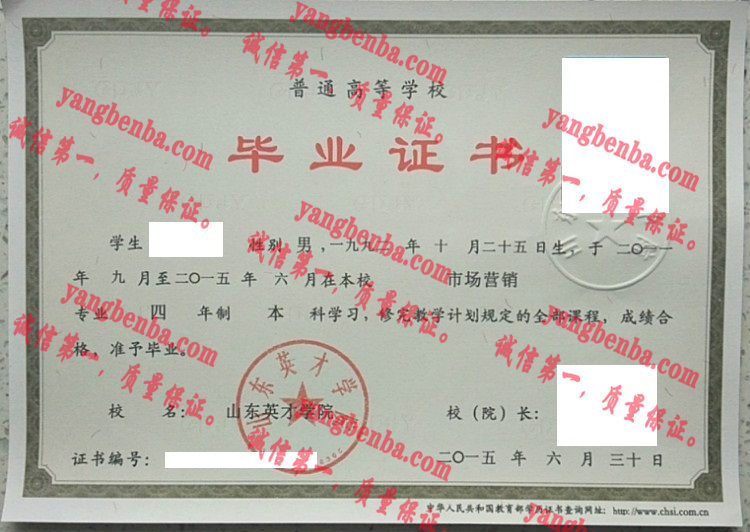 普通高等学校
毕业证书
学生 性别 男 ,一九九二 年 十 月二十五日生，于 二〇一一
年 九 月至二〇一五 年 六 月在本校 市场营销
专业 四 年制 本 科学习，修完教学计划规定的全部课程，成绩合
格，准予毕业。
校 名： 山东英才学院 校（院）长：
山东英才学院
证书编号： 二〇一五 年 六 月 三十 日
中华人民共和国教育部学历证书查询网址：http://www.chsi.com.cn
yangbenba.com
诚信第一，质量保证。
yangbenba.com
诚信第一，质量保证。
yangbenba.com
诚信第一，质量保证。
yangbenba.com
诚信第一，质量保证。
yangbenba.com
诚信第一，质量保证。
yangbenba.com
诚信第一，质量保证。
yangbenba.com
诚信第一，质量保证。